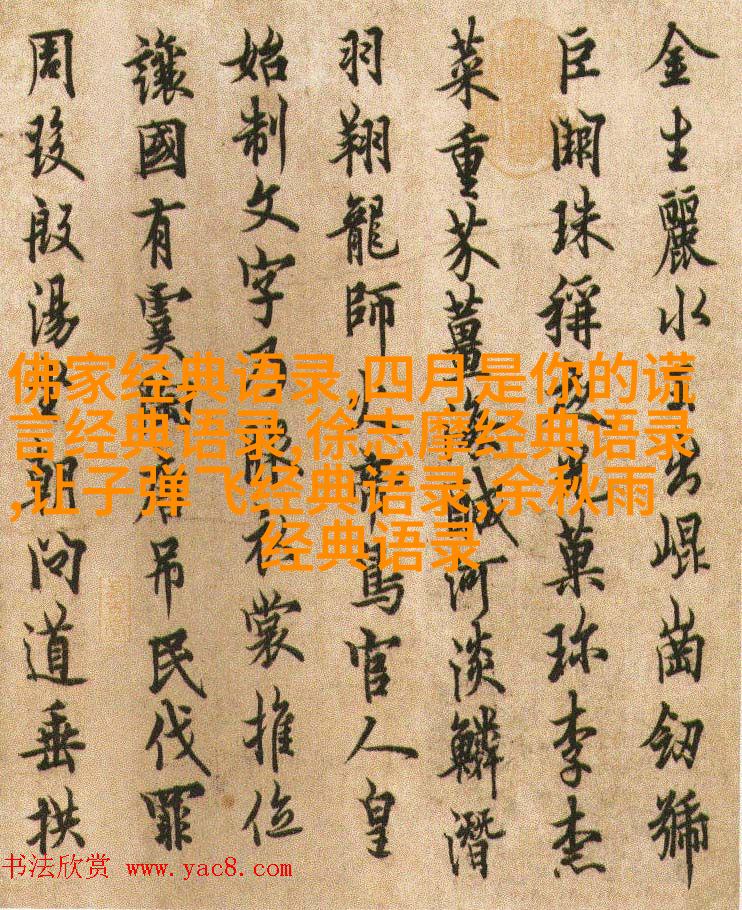 金生麗水出崐崗劒號
巨闕珠稱菓珎李柰
菜重芥薑鹹河淡鱗潛
羽翔龍師火帝鳥官人皇
始制文字乃服衣裳推位
讓國有虞陶吊民伐罪
周發殷湯坐朝問道垂拱
佛家经典语录,四月是你的谎
言经典语录,徐志摩经典语录
,让子弹飞经典语录,余秋雨
经典语录
书法欣赏 www.yac8.com